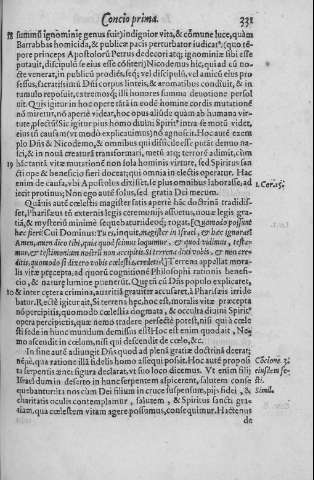 Concio prima. 331
18 summũ ignominię genus fuit) indignior vita, & cõmune luce, quàm
Barrabbas homicida, & publicæ pacis perturbator iudicat⁹: (quo tẽ-
pore princeps Apostolorũ Petrus data de eo atq; ignominiæ sibi esse
putauit, discipulũ se eius esse cõfiteri) Nicodemus hic, quiad cũ no-
cte venerat, in publicũ prodiẽs, seq; vel discipulũ, vel amicũ eius pro
fessus, sacratissimũ Dñi corpus linteis, & aromatibus conduit, & in
tumulo reposuit, extremosq́; illi honores summa deuotione persol
uit. Quis igitur in hoc opere tãtã in eodẽ homine cordis mutationẽ
nõ miretur, nõ aperte videat, hoc opus aliũde quàm ab humano vir-
tute, pfectũ? Sic igitur pius homo dũ diu spirit⁹ intra se motũ videt,
eius tñ causam (vt modo explicatimus) nõ agnoscit. Hoc autẽ exem
plo Dñs & Nicodemo, & omnibus qui difficile esse putãt denuo na-
sci, & in nouã creaturã transformari, omnẽ atq; terrorẽ adimit, cùm
19 hãc tantã vitæ mutationẽ non sola hominis virtute, sed Spiritus san
cti ope & beneficio fieri doceat; qui omnia in electis operatur. Hac
enim de causa, vbi Apostolus dixisset, se plus omnibus laborasse, ad 1. Cor. 15.
iecit protinus, Non ego autẽ solus, sed gratia Dei mecum.
Quãuis autẽ cœlestis magister satis apertè hãc doctrinã tradidis-
set, Pharisæus tñ externis legis ceremonijs assuetus, nouæ legis gra-
tiã, & mysteriũ minimè sequebatur: ideoq́; rogat, Quomodo possunt
hæc fieri? Cui Dominus: Tu es, inquit, magister in Israel, & hæc ignoras?
Amen, amen dico tibi, quia quod scimus loquimur, & quod vidimus, testa-
mur, & testimonium nostrũ non accipitis. Si terrena dixi vobis, & non cre-
ditis, quomodo si dixero vobis cœlestia, credetis? Terrena appellat mora
lis vitæ pręcepta, ad quorũ cognitionẽ Philosophi rationis benefi-
cio, & naturæ lumine puenerũt. Quæ tñ cũ Dñs populo explicaret,
20 & inter cætera crimina, auaritiã grauiter accusaret, à Pharisæis irride
batur. Rectè igitur ait, Si terrena hęc, hoc est, moralis vitæ præcepta
nõ percipitis, quomodo cœlestia dogmata, & occulta diuini Spirit⁹
opera percipietis, quæ nemo tradere perfectè potest, nisi qui à cœle
sti sede in hunc mundum demissus est? Hoc est enim quod ait, Ne-
mo ascendit in cœlum, nisi qui descendit de cœlo, &c.
In fine autẽ adiungit Dñs quod ad plenã gratiæ doctrinã deerat;
nẽpe, qua ratione illã fidelis homo assequi possit. Hoc autẽ proposi Cõcione 3.
ta serpentis æneæ figura declarat, vt suo loco dicemus. Vt enim filij eiusdem fe-
Israel dum in deserto in hunc serpentem aspicerent, salutem conse sti.
quebantur: ita nos cùm Dei filium in cruce suspensum, pijs fidei, & Simil.
charitatis oculis contemplamur, salutem, & Spiritus sancti gra-
tiam, qua cœlestem vitam agere possumus, consequimur. Hactenus
de